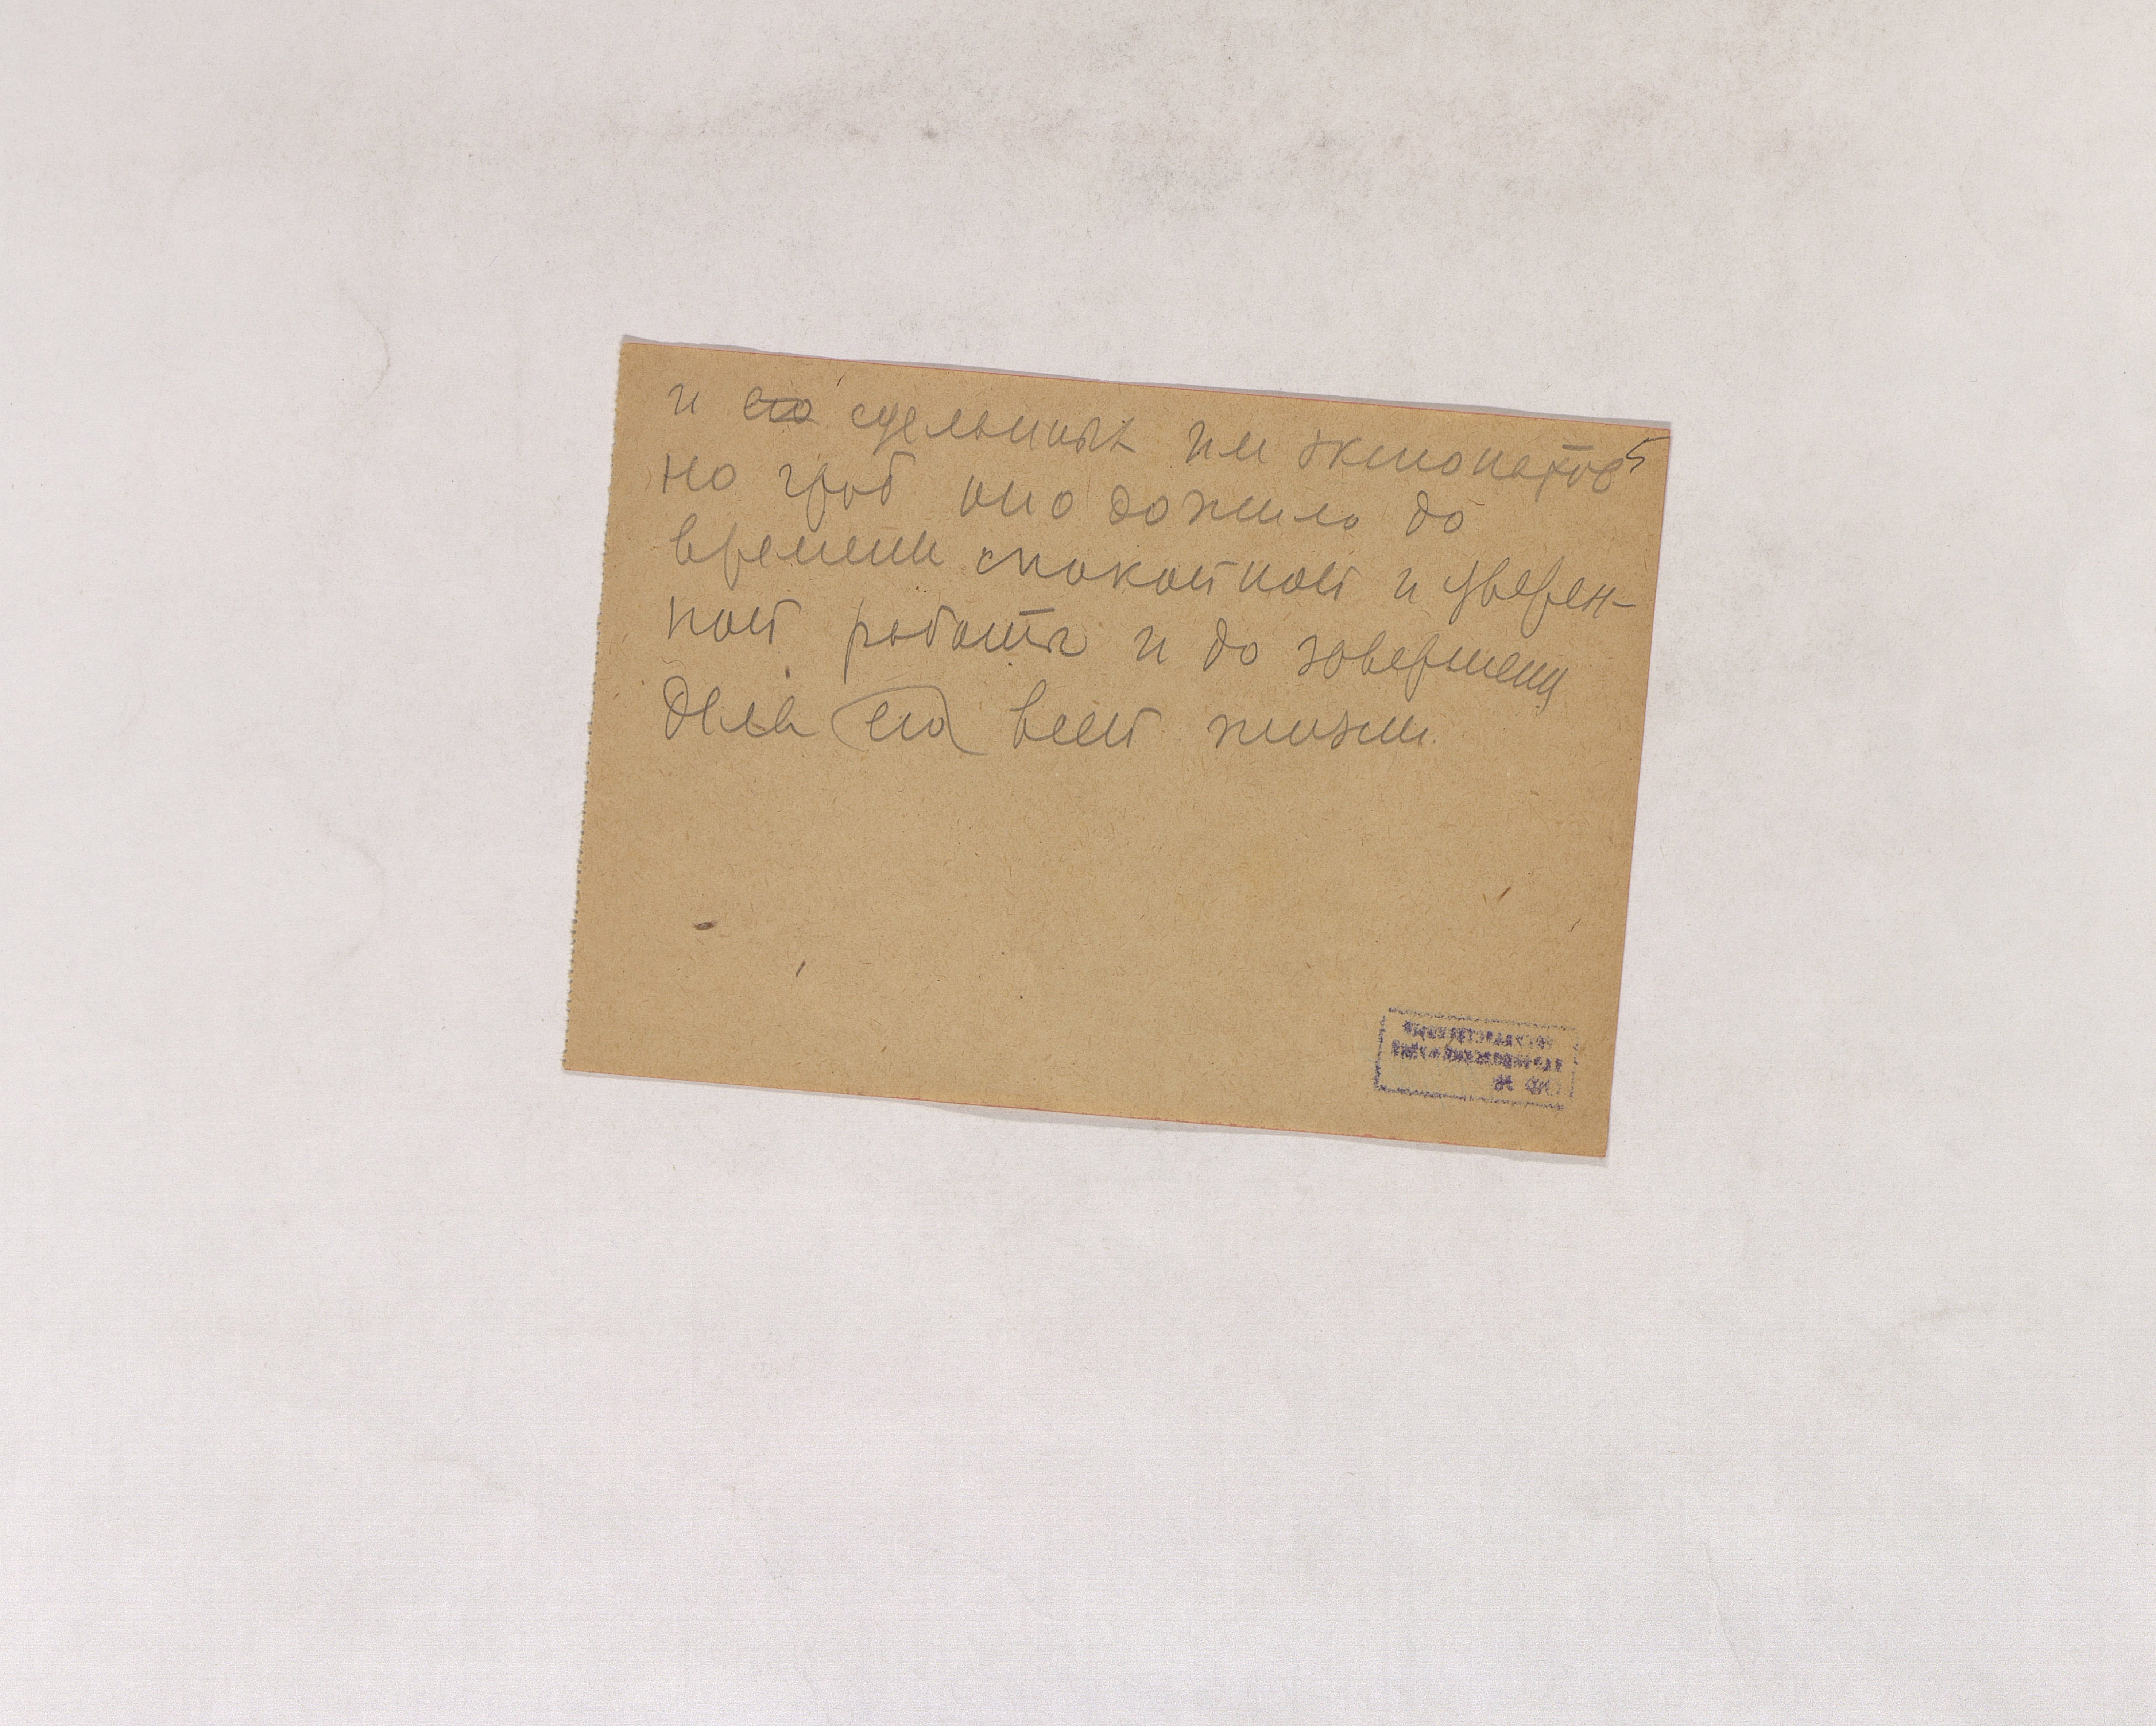 и его сделанных им экспонатов
но чтоб она дожила до
времени спокойной и уверен-
ной работы и до завершени
дела его всей жизни.